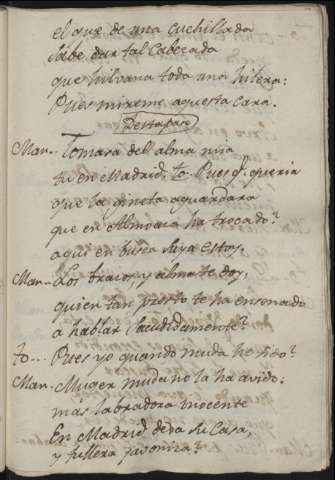 el que de una cuchillada
sabe dar tal cabezada
que hilvana toda una hilera:
Pues mireme aquesta cara.
Destapase
Man- Tomasa del alma mia
tu en Madrid. to. Pues q.e queria
que la aguardara
que en ha trocado?
aqui en busca suya estoy.
Man- Los brazos, y alma te doy,
quien tan presto te ha ensenado
a hablar sacudidamente?
to... Pues yo quando muda he sido?
Man- Muger muda no la ha avido;
mas labradora inocente
En Madrid de a su casa,
y fullera